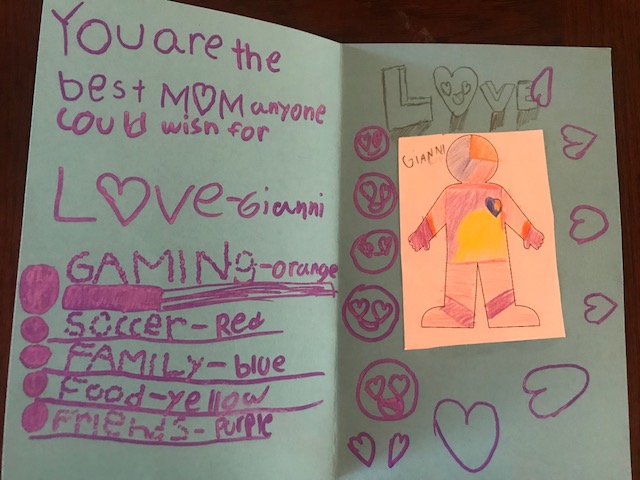 You are the
best MOM anyone
could wish for
LOVE-Gianni
GAMING-orange
Soccer-Red
FAMILY-blue
Food-yellow
Friends-Purple
LOVE
GIANNI